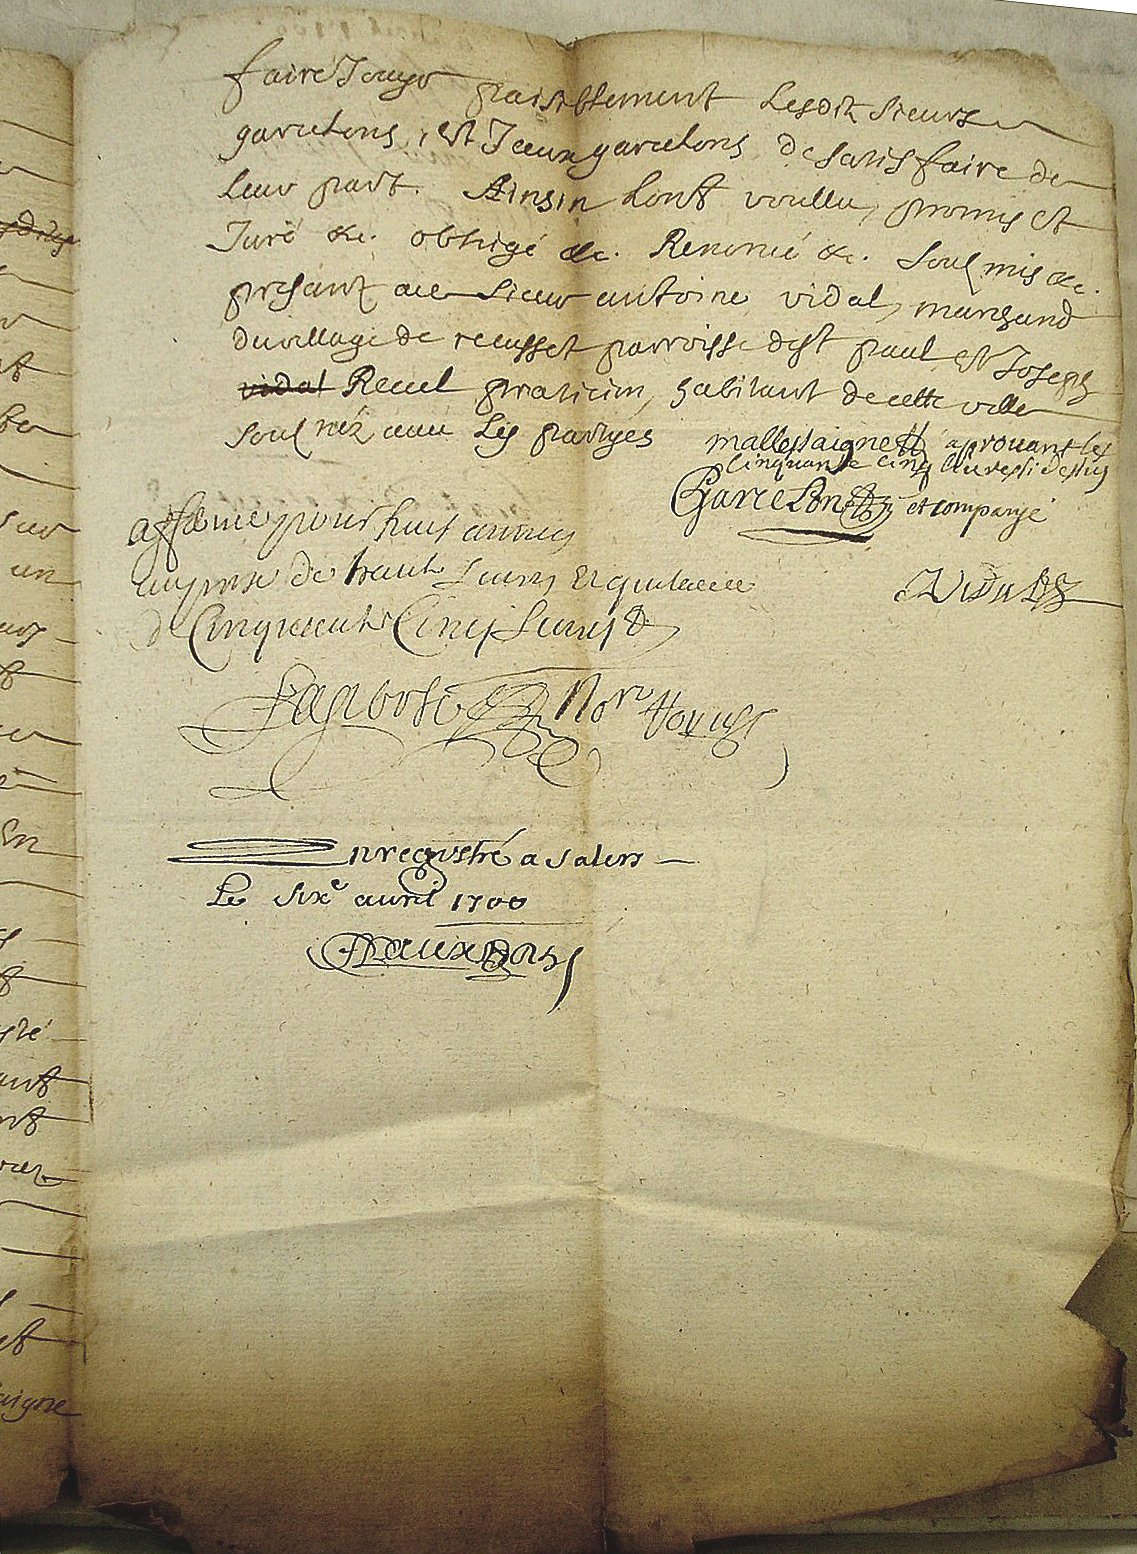 faire Jouyr paisiblement Lesditz sieurs
garcelons, et Iceux garcelons de satisfaire de
leur part. Ainsin lont voullu, promis et
Juré &c. obligé &c. Renoncé &c. soubmis &c.
presant ace sieur antoine vidal, marchand
du village de recusset parroisse de st paul et Joseph
vidal Recul praticien, habitant de cette ville
soubz néz avec les partyes mallessaigne aprouant les
cinquante cinq livres si dessus
Garcelon et companye
afferme pour huit années
au prix de
de Cinquante Cinq
Vidal
nore Royal
Enregistré a salers
Le sixe avril 1700